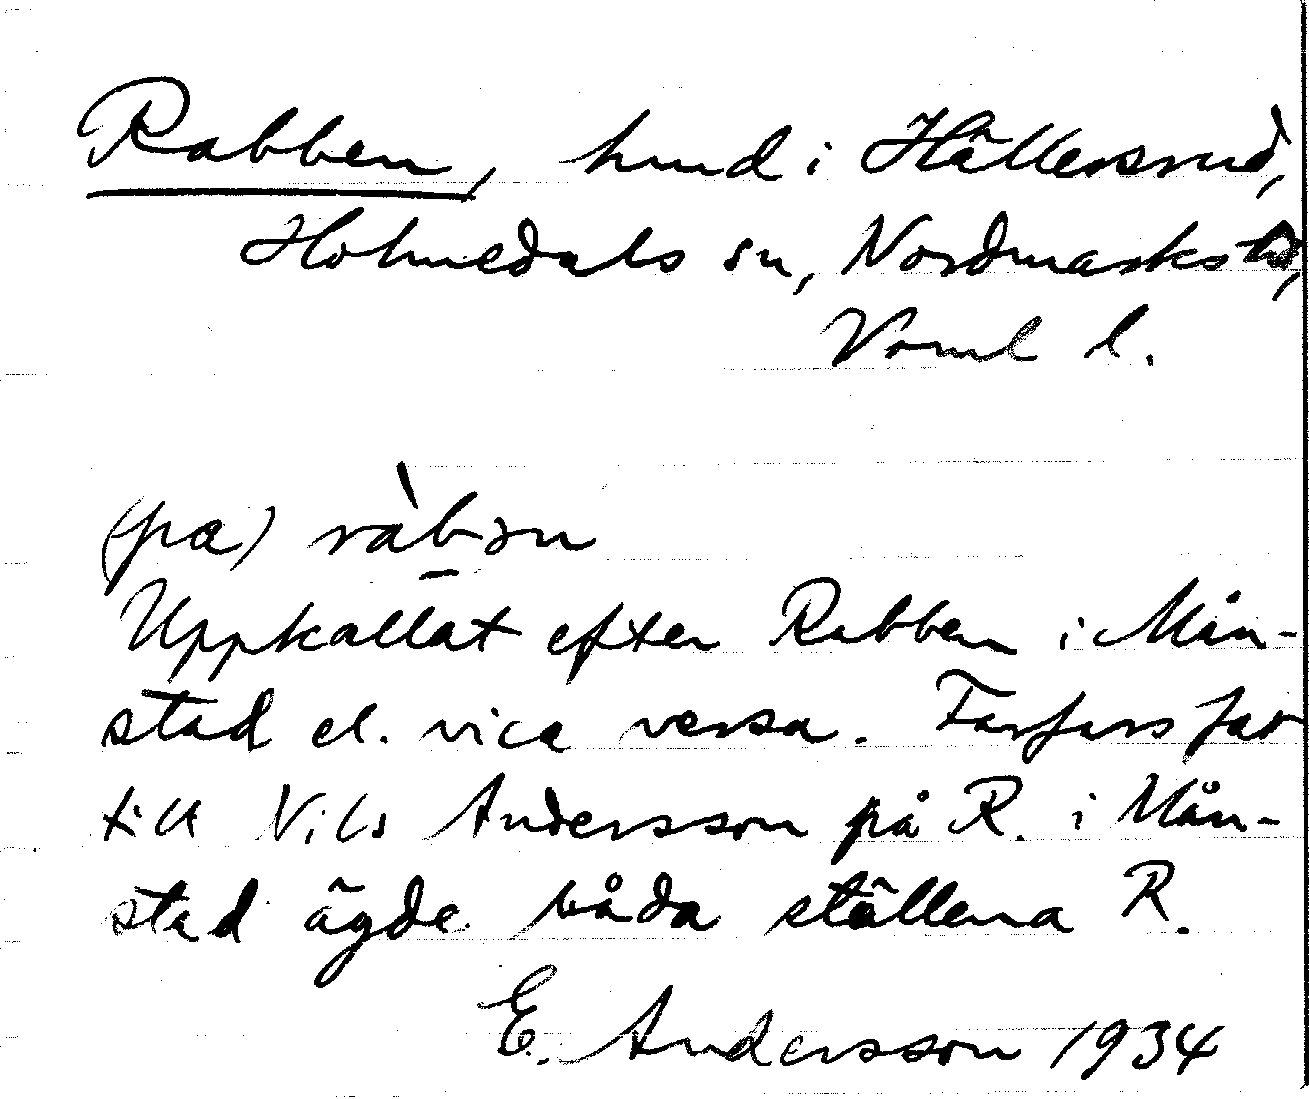 Rabben, hmd i Hällersrud,
Holmedals sn, Nordmarks hd,
Vrml l.
(pa) ràb̠ən
Uppkallat efter Rabben i Mån-
stad el. vica versa. Farfars far
till Nils Andersson på R. i Mån-
stad ägde båda ställena R.
E. Andersson 1934